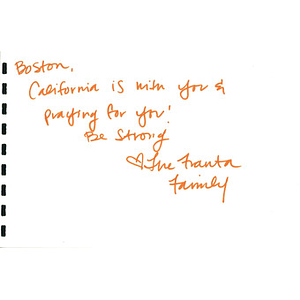 Boston,
California is with you &
praying for you!
Be Strong
♡ The Franta
Family